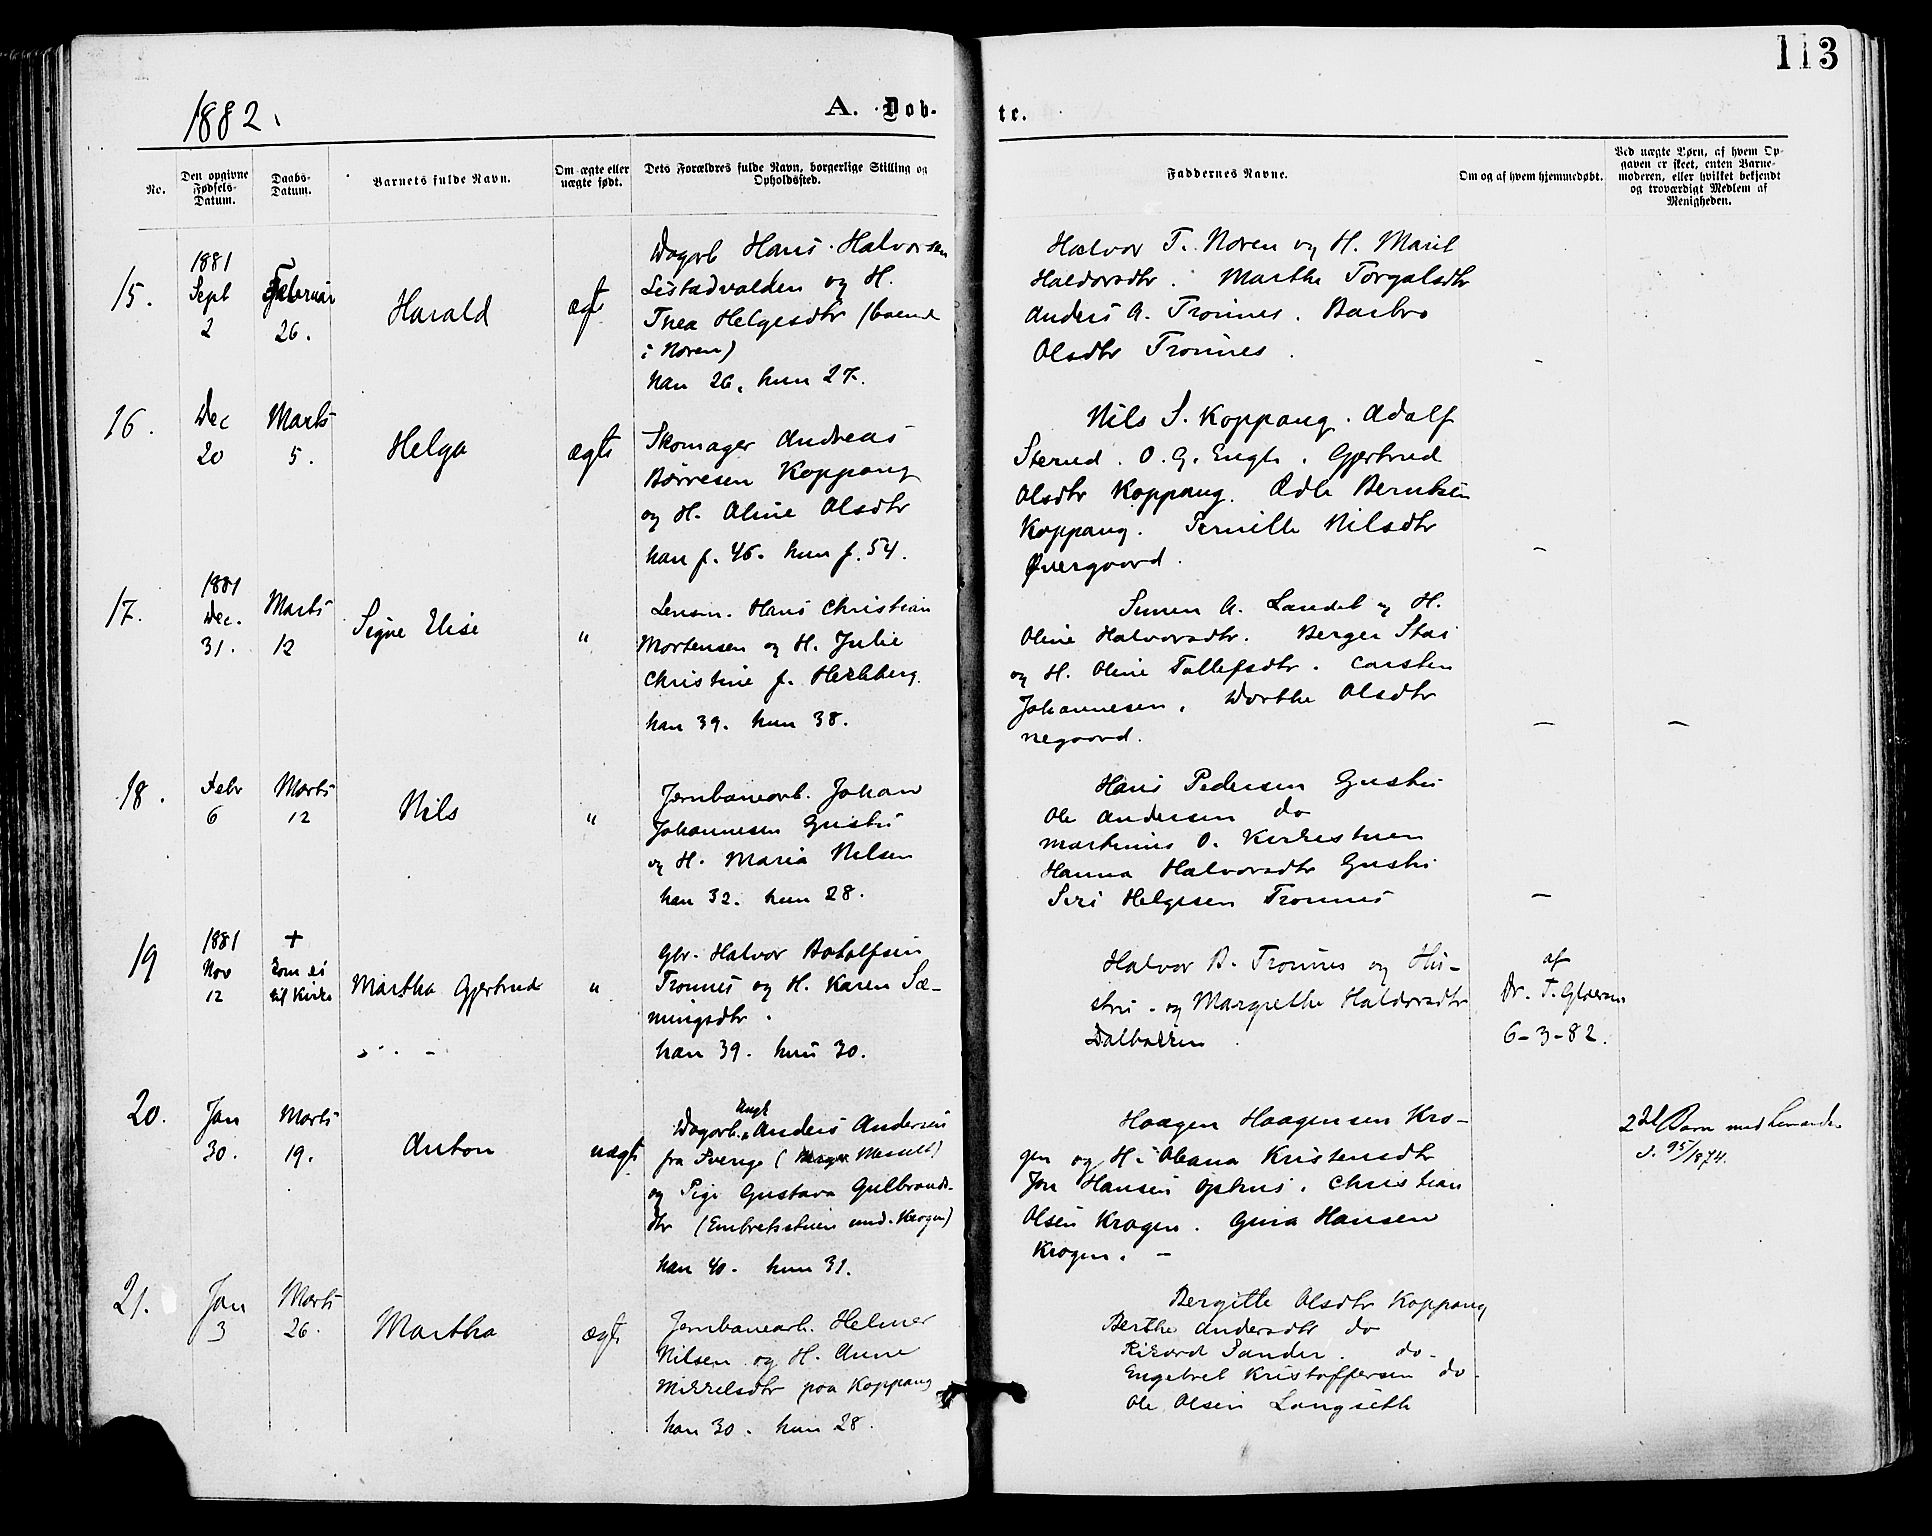 113
1882.
A. Dob-
te.
No.
Den opgivne
Fødsels-
Datum.
Daabs-
Datum.
Barnets fulde Navn.
Om ægte eller
uægte født.
Dets Forældres fulde Navn, borgerlige Stilling og
Opholdssted.
Faddernes Navne.
Om og af hvem hjemmedøbt.
Ved uægte Børn, af hvem Op-
gaven er skeet, enten Barne-
moderen, eller hvilket bekjendt
og troværdigt Medlem af
Menigheden.
15.
1881
Sept
2
Februar
26.
Harald
ægte
Dagarb Hans Halvorsen
Listadvolden og H.
Thea Helgesdtr (boende
i Noren)
han 26, hun 27.
Halvor T. Noren og H. Marit
Haldorsdtr. Marthe Torgalsdtr
Anders A. Trønnes. Barbro
Olsdtr Trønnes.
16.
Dec
20
Marts
5.
Helga
ægte
Skomager Andreas
Børresen Koppang
og H. Oline Olsdtr
han f. 46. hun f. 54.
Nils S. Koppang. Adolf
Sterud. O. G. Engh. Gjertrud
Olsdtr Koppang. Berntsen
Koppang. Pernille Nilsdtr
Øvergaard.
–
17.
1881
Dec.
31.
Marts
12
Signe Elise
"
Lensm. Hans Christian
Mortensen og H. Julie
Christine f. Herkberg.
han 39. hun 38.
Simen A. Landet og H.
Oline Halvorsdtr. Berger Stai
og H. Oline Tollefsdtr. Carsten
Johannesen. Dorthe Olsdtr
negaard.
– –
18.
Febr
6
Marts
12
Nils
"
Jernbanearb. Johan
Johannesen Gusti
og H. Maria Nilsen
han 32. hun 28.
Hans Pedersen Gusti
Ole Andersen do
Martinius O. Kirkestuen
Hanna Halvorsdtr Gusti
Siri Helgesen Trønnes
–
19
1881
Nov
12
+
kom ei
til Kirke
Martha Gjertrud
"
Gbr. Halvor Botolfsen
Trønnes og H. Karen Sæ-
mingsdtr.
han 39. hun 30.
Halvor B. Trønnes og Hu-
stru – og Margrethe Haldorsdtr
Dalbakken.
af
Dr. T.
6-3-82.
20.
Jan
30.
Marts
19.
Anton
uægte
Ungk
Dagarb. Anders Andersen
fra Sverige (Messelt)
og Pige Gustava Gulbrands-
dtr (Embretsstuen und. Krogen)
han 40. hun 31.
Haagen Haagensen Kro-
gen og H. Oleana Kristensdtr
Jon Hansen Ophus. Christian
Olsen Krogen. Gina Hansen
Krogen. –
2det Barn
s. 95/1874.
21.
Jan
3
Marts
26.
Martha
ægte
Jernbanearb. Helmer
Nilsen og H. Anne
Mikkelsdtr paa Koppang
han 30. hun 28.
Bergitte Olsdtr Koppang
Berthe Andersdtr do
Rikard Sander. do-
Engebret Kristoffersen do-
Ole Olsen Langseth